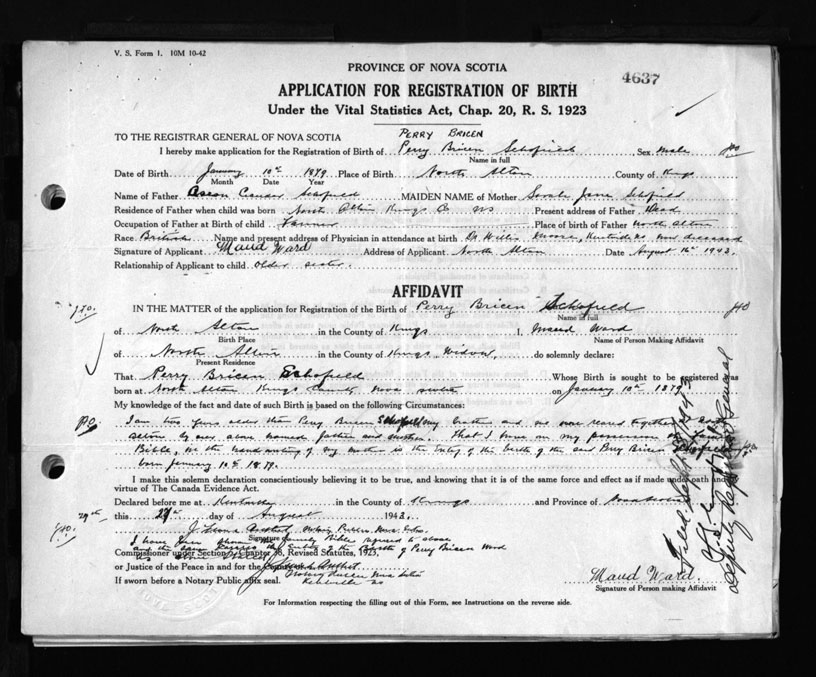 V. S. Form 1. 10M 10-42
PROVINCE OF NOVA SCOTIA
4637
APPLICATION FOR REGISTRATION OF BIRTH
Under the Vital Statistics Act, Chap. 20, R. S. 1923
PERRY BRICEN
TO THE REGISTRAR GENERAL OF NOVA SCOTIA
I hereby make application for the Registration of Birth of Perry Bricen Schofield Sex male
Name in full
Date of Birth January 10th 1879 Place of Birth North Alton County of Kings
Month Date Year
Name of Father MAIDEN NAME of Mother Sarah Jane Schofield
Residence of Father when child was born North Alton Kings Co NS Present address of Father Dead
Occupation of Father at Birth of child Farmer Place of birth of Father North Alton
Race British Name and present address of Physician in attendance at birth Dr Willis Moore, Kentville NS now deceased
Signature of Applicant Maud Ward Address of Applicant North Alton Date August 16th 1943.
Relationship of Applicant to child older sister.
AFFIDAVIT
IN THE MATTER of the application for Registration of the Birth of Perry Bricen Schofield
Name in full
of North Alton in the County of Kings I, Maud Ward
Birth Place Name of Person Making Affidavit
of North Alton in the County of Kings, Widow, do solemnly declare:
Present Residence
That Perry Bricen Schofield Whose Birth is sought to be registered was
born at North Alton Kings County Nova Scotia on January 10th 1879
My knowledge of the fact and date of such Birth is based on the following Circumstances:
I am two years older than Perry Bricen Schofield my brother and we were reared together
Alton by our above named father and mother. That I have in my possession family
Bible, in the handwriting of my mother is the entry of the birth of the said Perry Bricen Schofield
born January 10th 1879.
I make this solemn declaration conscientiously believing it to be true, and knowing that it is of the same force and effect as if made under oath and by
virtue of The Canada Evidence Act.
Declared before me at Kentville in the County of Kings and Province of Nova Scotia
29th this day of August 1943.
Notary Public Nova Scotia
I have been shown the family Bible referred to above
Signature
and the same carries the Entry of the Birth of Perry Bricen
Commissioner under Section 2, Chapter 38, Revised Statutes, 1923,
or Justice of the Peace in and for the
Notary Public Nova Scotia
If sworn before a Notary Public affix seal. Kentville NS
Maud Ward.
Signature of Person making Affidavit
For Information respecting the filling out of this Form, see Instructions on the reverse side.
Filed Sept
Deputy Registrar General